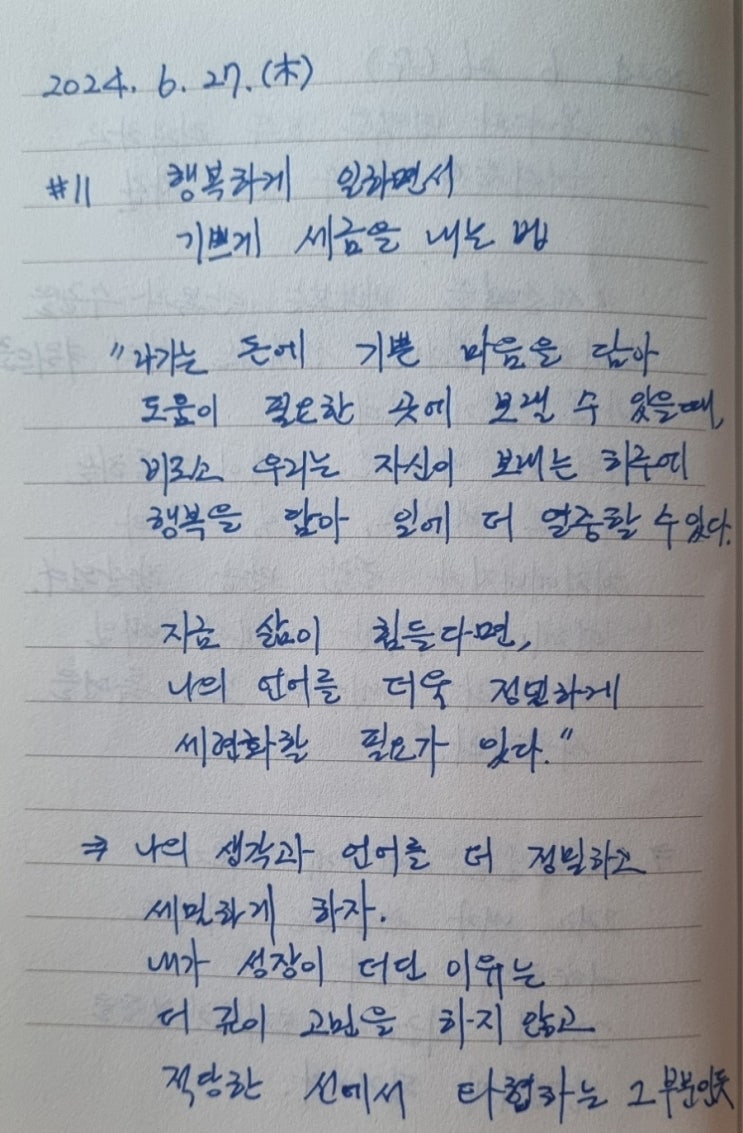 2024. 6. 27. (木)
#11 행복하게 일하면서
기쁘게 세금을 내는 법
"나가는 돈에 기쁜 마음을 담아
도움이 필요한 곳에 보낼 수 있을때,
비로소 우리는 자신이 보내는 하루에
행복을 담아 일에 더 열중할 수 있다.
지금 삶이 힘들다면,
나의 언어를 더욱 정밀하게
세련화할 필요가 있다."
⇒ 나의 생각과 언어를 더 정밀하고
세밀하게 하자.
내가 성장이 더딘 이유는
더 깊이 고민을 하지 않고
적당한 선에서 타협하는 그 부분인듯